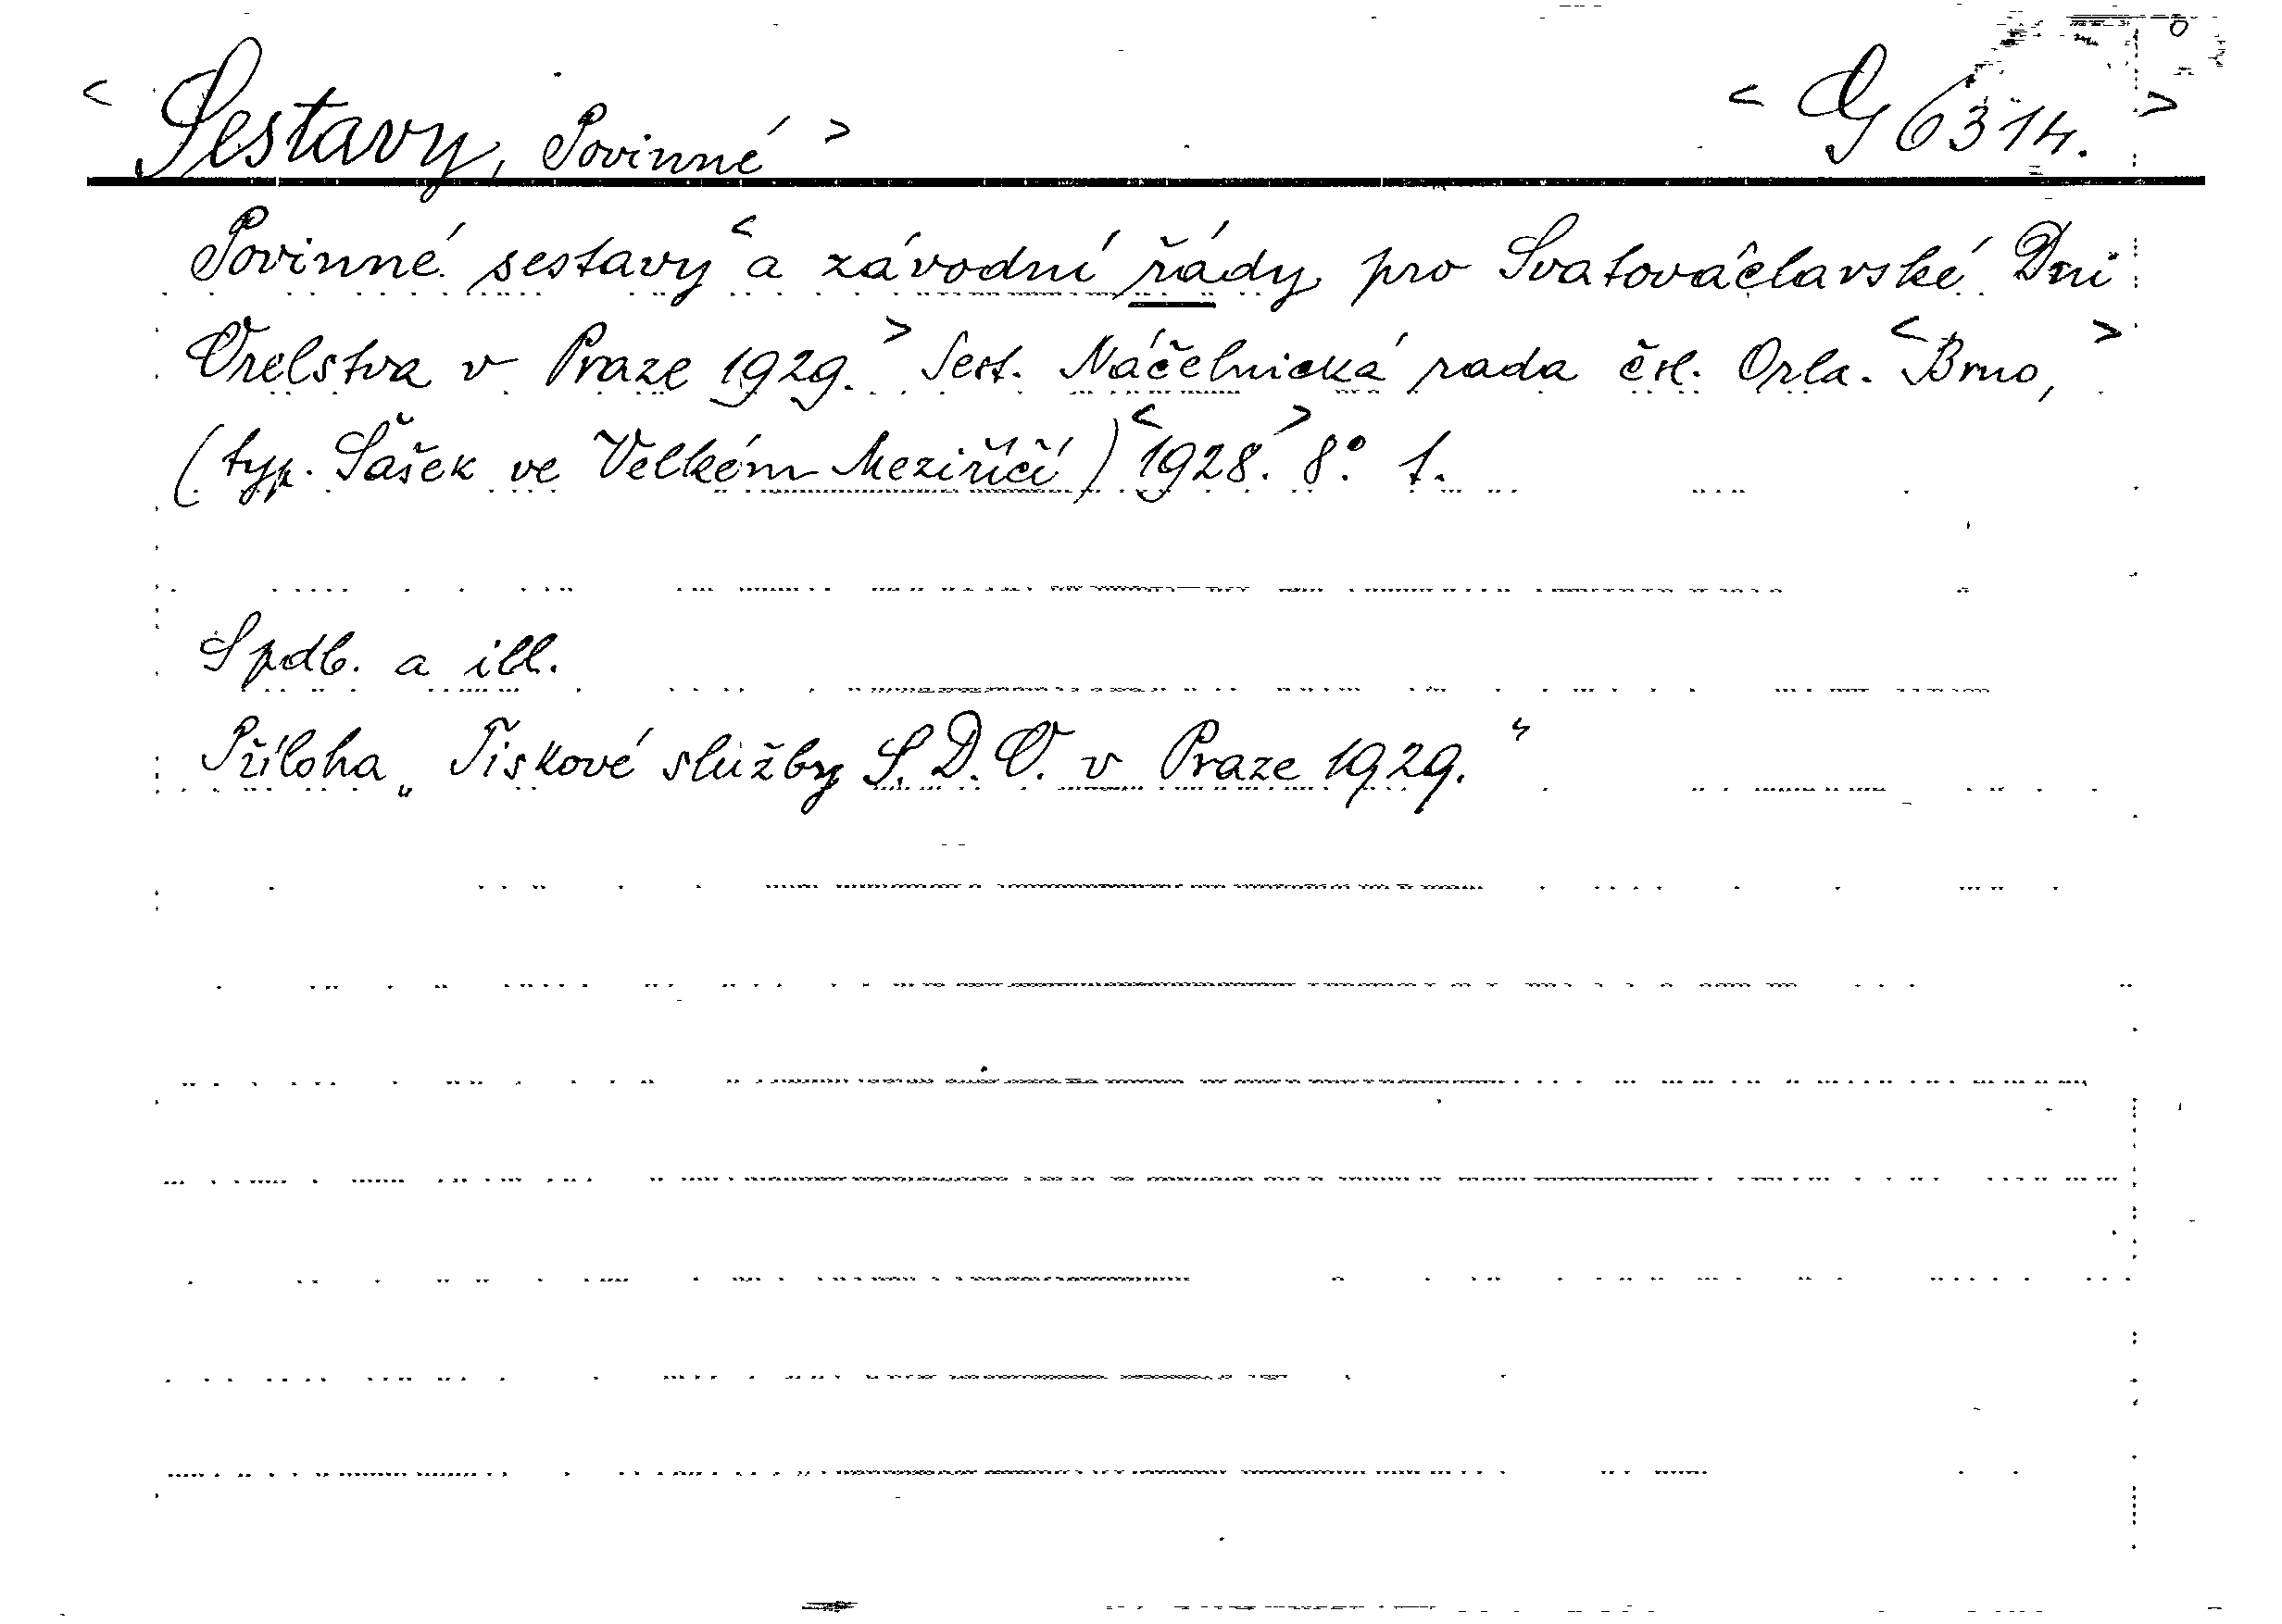 < Sestavy, Povinné > < G 6314. >
Povinné sestavy < a závodní řády pro Svatováclavské Dni
Orelstva v Praze 1929. > Sest. Náčelnická rada čsl. Orla. < Brno, >
(typ. Šašek ve Velkém Meziříčí) < 1928. > 8° 1.
S pdb. a ill.
Příloha „Tiskové služby S. D. O. v Praze 1929."